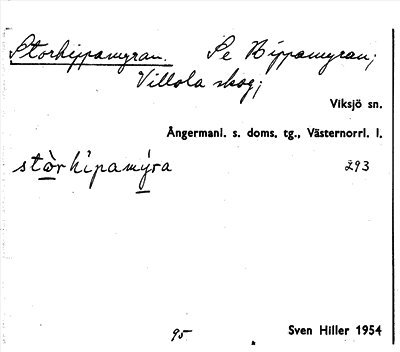 Storhippamyran. Se Hippamyran;
Villola skog;
Viksjö sn.
Ångermanl. s. doms. tg., Västernorrl. l.
stòrhìpamýra 293
95 Sven Hiller 1954